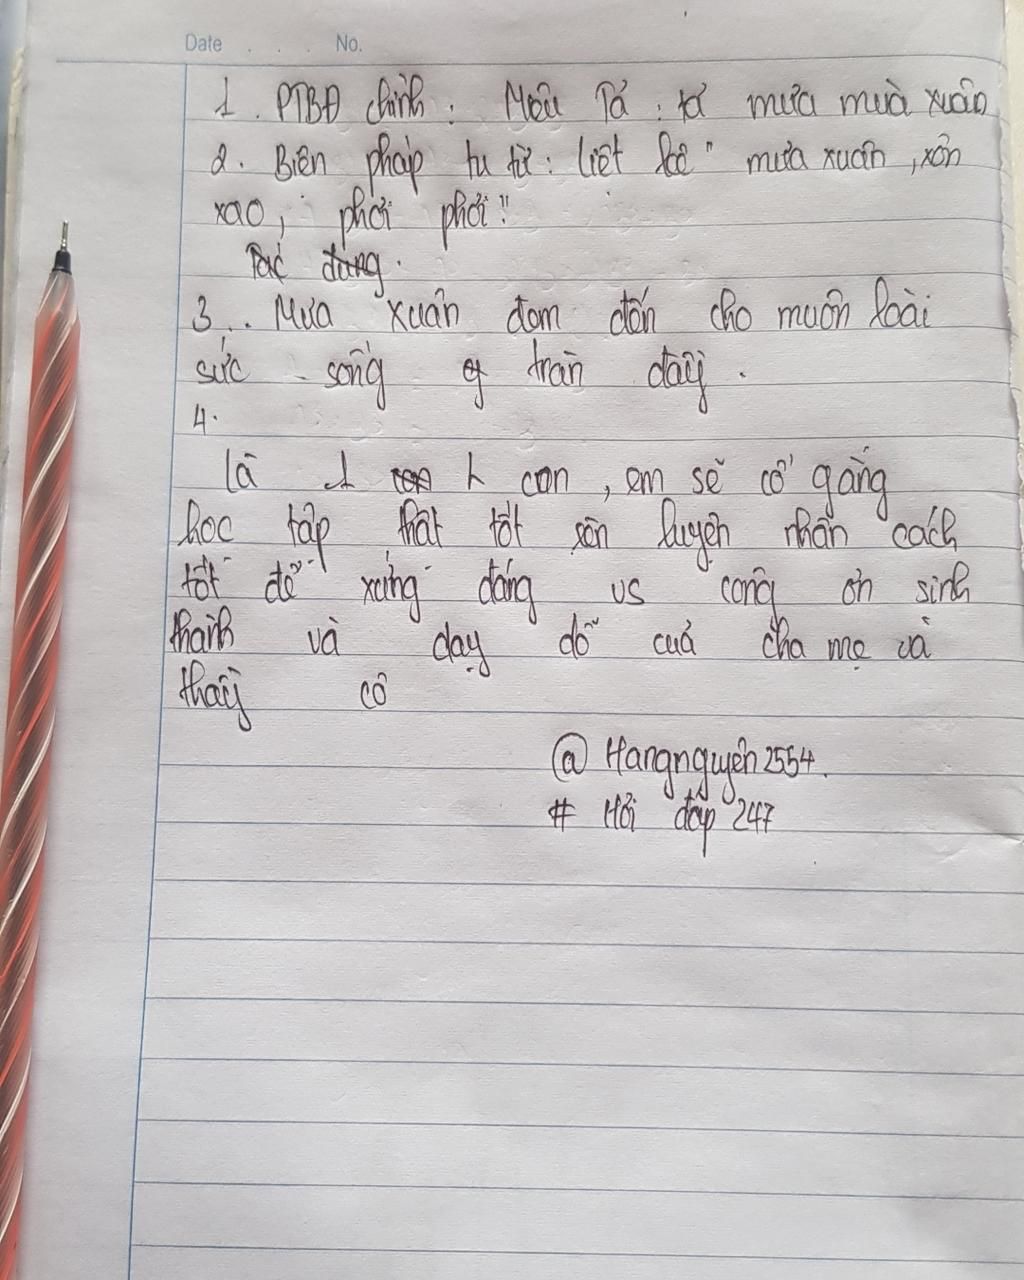 Date . . . No.
1. PTBĐ chính: Miêu Tả: tả mưa muà xuân
2. Biên pháp tu từ: liệt kê " mưa xuân, xôn
xao, phơi phới"
Tác dụng.
3.. Mưa xuân đem đến cho muôn loài
sức sống tràn đầy.
4.
là 1 con, em sẽ cố gắng
học tập thật tốt rèn luyện nhân cách
tốt để xứng đáng vs công ơn sinh
thành và dạy dỗ cuả cha mẹ và
thầy cô
@ Hangnguyên2554.
# Hỏi đáp 247